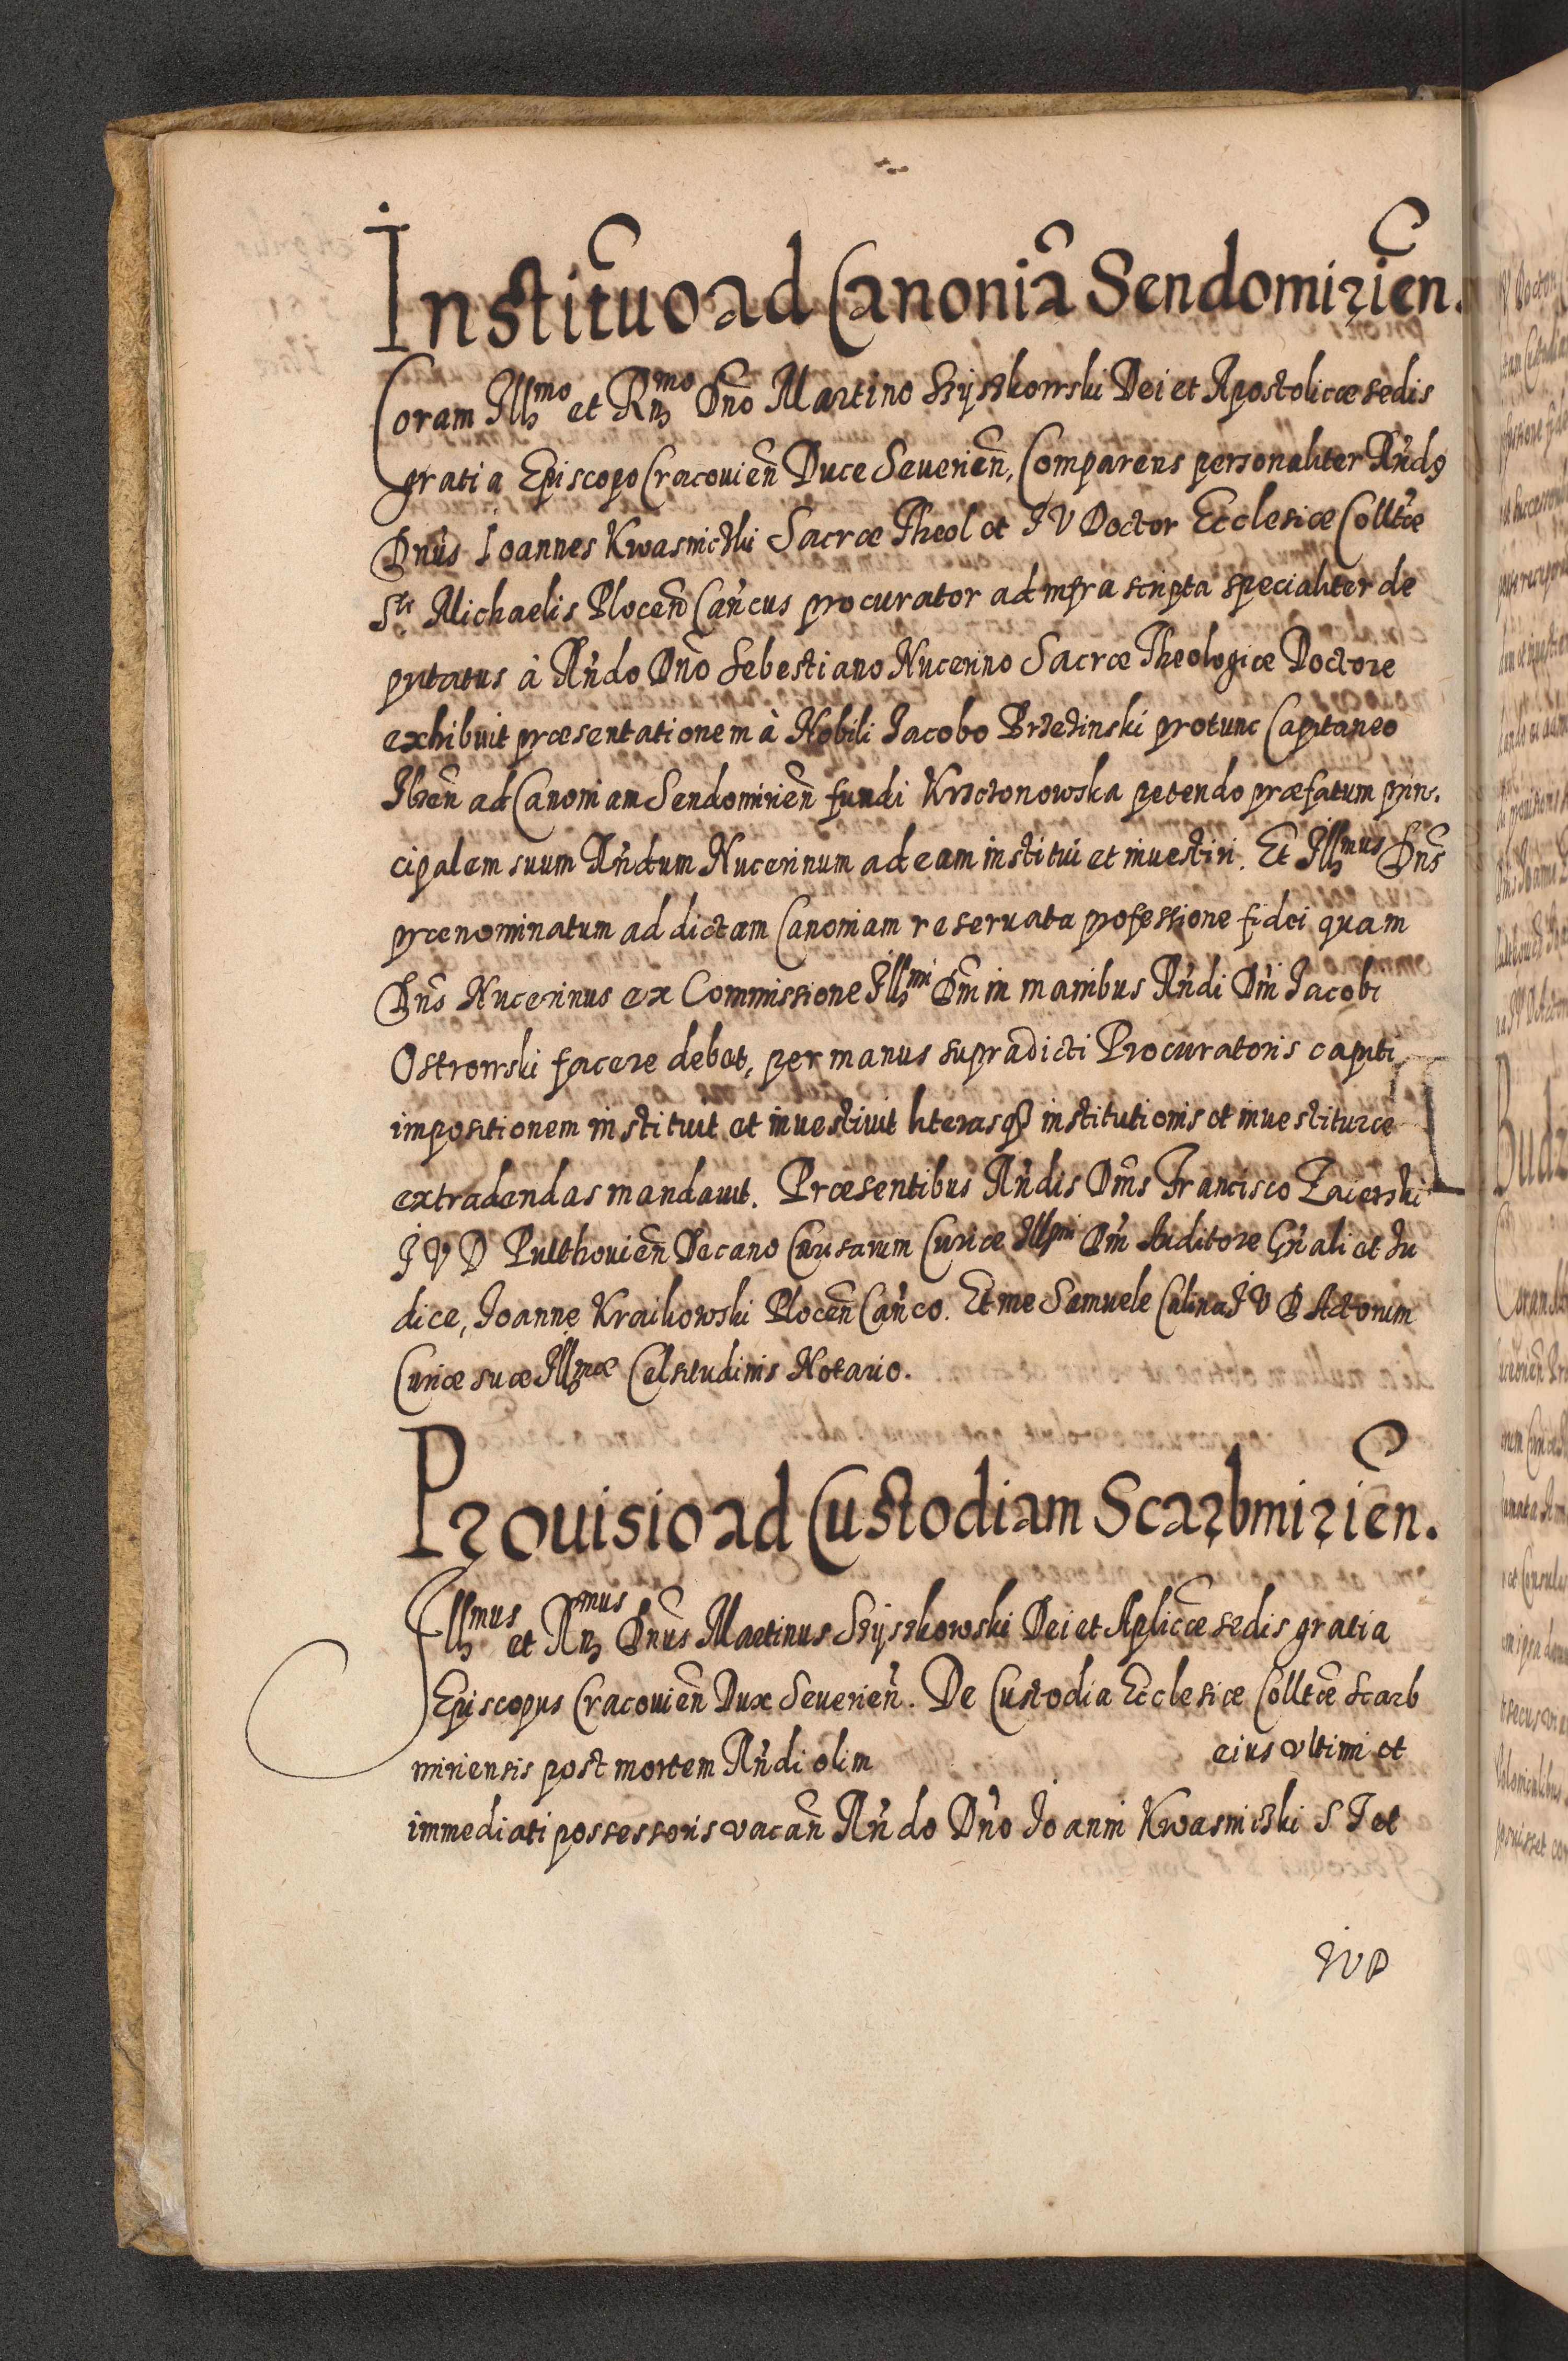 Institũo ad Canoniã Sendomiriẽn.
Coram Illmo et Rmo Dño Martino Szyszkowski Dei et Apostolicæ sedis
gratia Episcopo Cracouieñ Duce Seuerieñ, Comparens personaliter Rñds
Dnús Ioannes Kwasnickli Sacræ Theol et I V Doctor Ecclesiæ Colltæ
Sti Michaelis Ploceñ Cañcus procurator ad infra scripta specialiter de
putatus à Rñdo Dño Sebestiano Nucerino Sacræ Theologiæ Doctore
exhibuit præsentationem à Nobili Jacobo Brzezinski protunc Capitaneo
Ilzeñ ad Canoniam Sendomirieñ fundi Krzczonowska petendo præfatum prin.
cipalem suum Rñdum Nucerinum ad eam institui et inuestiri. Et Illmus Dñs
prænominatum ad dictam Canoniam reseruata professione fidei quam
Dñs Nucerinus ex Commissione Illmi Dñi in manibus Rñdi Dñi Jacobi
Ostrowski facere debet, per manus supradicti Procuratoris capiti
impositionem instituit et inuestiuit literasq; institutionis et inuestituræ
extradendas mandauit. Præsentibus Rñdis Dñis Francisco Zaierski
I V D Pulthouieñ Decano Causarum Curiæ Illmi Dñi Auditore Gñali et Ju
dice, Joanne Kraikowski Ploceñ Cañco. Et me Samuele Culina I V D Actorum
Curiæ suæ Illmæ Celsitudinis Notario.
Prouisio ad Custodiam Scarbmiriẽn.
Illmus et Rmus Dñus Martinus Szyszkowski Dei et Aplicæ sedis gratia
Episcopus Cracouieñ Dux Seuerieñ. De Custodia Ecclesiæ Colltæ Scarb
miriensis post mortem Rñdi olim eius vltimi et
immediati possessoris vacañ Rñdo Dño Ioanni Kwasniczki S T et
IVD